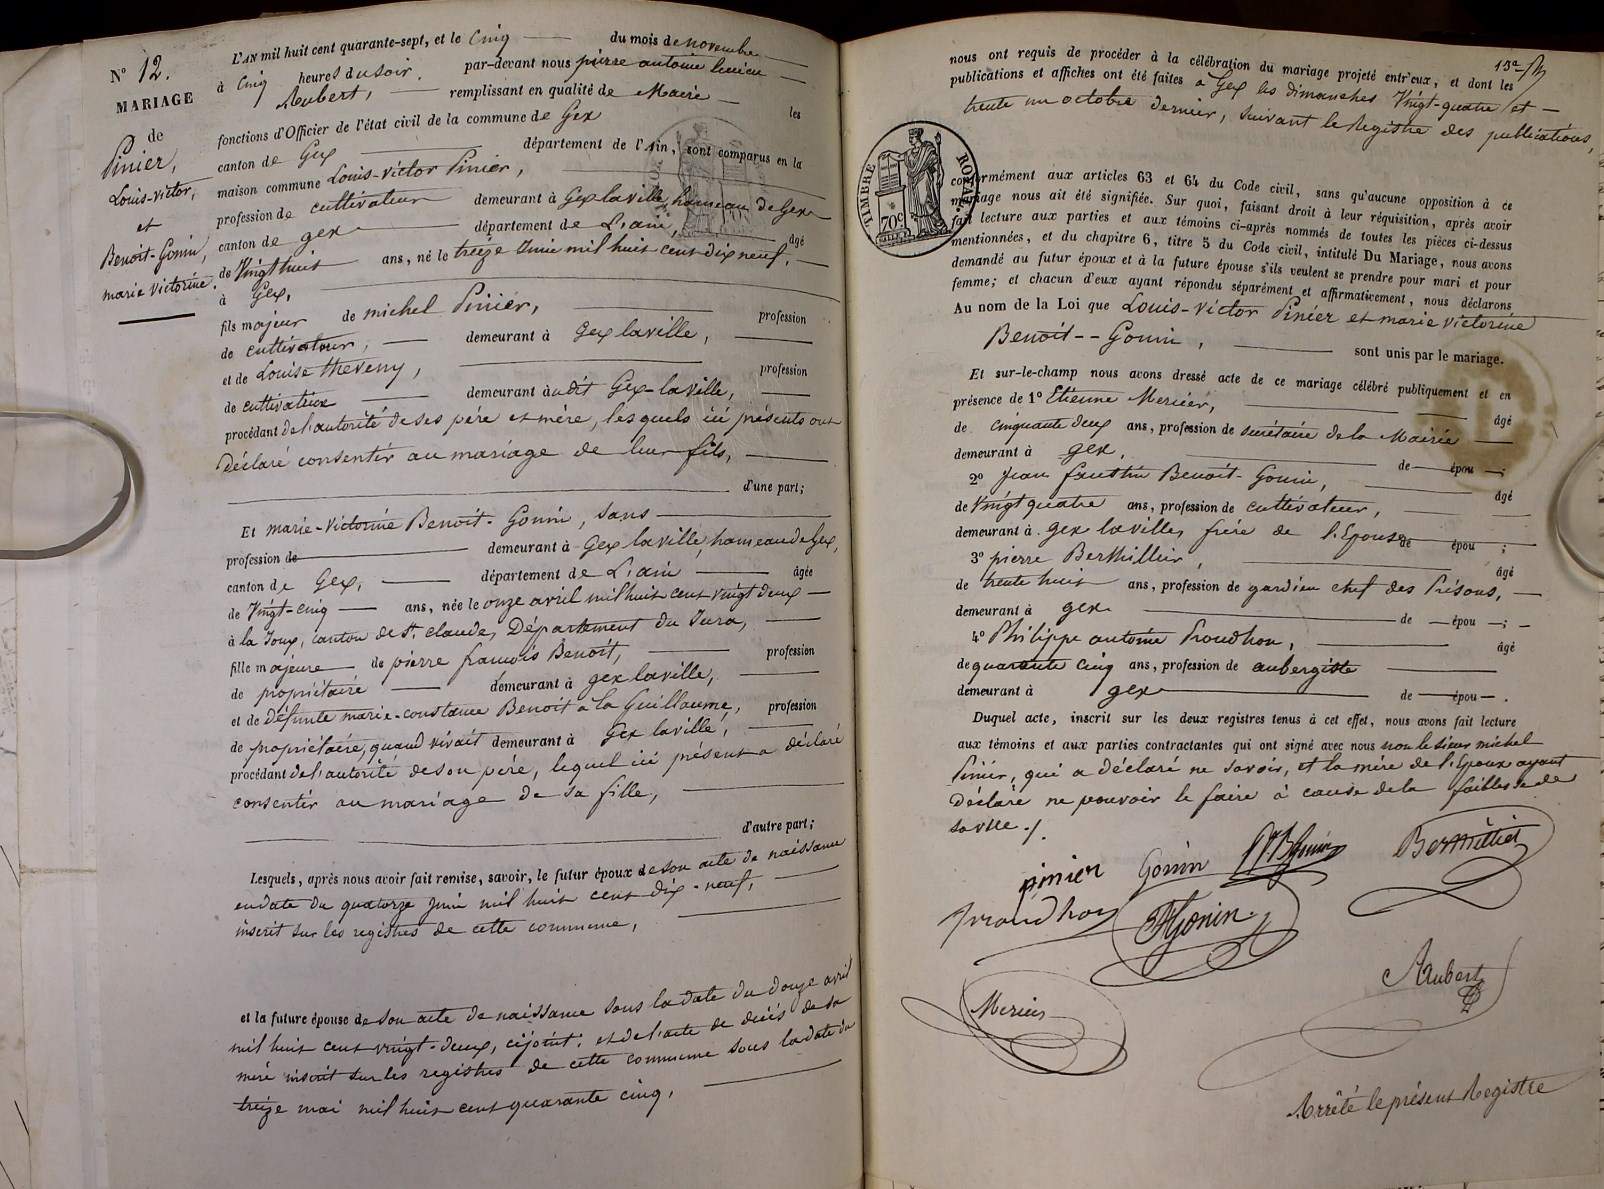 N° 12.
MARIAGE
de
Pinier,
Louis-victor,
et
Benoit-Gonin,
marie victorine.
L'AN mil huit cent quarante-sept, et le Cinq du mois de novembre
à Cinq heures du soir, par-devant nous pierre antoine
Aubert, remplissant en qualité de Maire les
fonctions d'Officier de l'état civil de la commune de Gex
canton de Gex département de l'Ain, sont comparus en la
maison commune Louis-victor Pinier,
profession de cultivateur demeurant à Gex la ville, hameau de Gex
canton de gex département de L'ain, âgé
de Vingt huit ans, né le treize Juin mil huit cent dix neuf,
à Gex,
fils majeur de michel Pinier, profession
de cultivateur, demeurant à Gex laville,
et de Louise theveny, profession
de cultivatrice demeurant audit Gex-laville,
procédant de l'autorité de ses père et mère, lesquels ici présents ont
déclaré consentir au mariage de leur fils,
d'une part;
Et marie-Victorine Benoit-Gonin, sans
profession de demeurant à Gex laville, hameau de Gex,
canton de Gex, département de L'ain âgée
de Vingt-cinq ans, née le onze avril mil huit cent vingt deux
à la Joux, canton de St. claude, Département du Jura,
fille majeure de pierre françois Benoit, profession
de propriétaire demeurant à gex laville,
et de défunte marie-constance Benoit à la Guillaume, profession
de propriétaire, quand vivait demeurant à Gex laville,
procédant de l'autorité de son père, lequel ici présent a déclaré
consentir au mariage de sa fille,
d'autre part;
Lesquels, après nous avoir fait remise, savoir, le futur époux de son acte de naissance
en date du quatorze Juin mil huit cent dix-neuf,
inscrit sur les registres de cette commune,
et la future épouse de son acte de naissance sous la date du douze avril
mil huit cent vingt-deux, cijoint; et de l'acte de décès de sa
mère inscrit sur les registres de cette commune sous la date du
treize mai mil huit cent quarante cinq,
nous ont requis de procéder à la célébration du mariage projeté entr'eux, et dont les
publications et affiches ont été faites à Gex les dimanches Vingt-quatre et
trente un octobre dernier, suivant le Registre des publications,
TIMBRE ROYAL
70c
conformément aux articles 63 et 64 du Code civil, sans qu'aucune opposition à ce
mariage nous ait été signifiée. Sur quoi, faisant droit à leur réquisition, après avoir
fait lecture aux parties et aux témoins ci-après nommés de toutes les pièces ci-dessus
mentionnées, et du chapitre 6, titre 5 du Code civil, intitulé Du Mariage, nous avons
demandé au futur époux et à la future épouse s'ils veulent se prendre pour mari et pour
femme; et chacun d'eux ayant répondu séparément et affirmativement, nous déclarons
Au nom de la Loi que Louis-victor Pinier et marie victorine
Benoit--Gonin, sont unis par le mariage.
Et sur-le-champ nous avons dressé acte de ce mariage célébré publiquement et en
présence de 1° Etienne Mercier, âgé
de cinquante deux ans, profession de secrétaire de la Mairie
demeurant à gex, de épou ;
2° Jean faustin Benoit-Gonin, âgé
de Vingt quatre ans, profession de cultivateur,
demeurant à gex laville, frère de l'Epouse de épou ;
3° pierre Berthillier, âgé
de trente huit ans, profession de gardien chef des Prisons,
demeurant à gex de épou ;
4° Philippe antoine Proudhon, âgé
de quarante cinq ans, profession de aubergiste
demeurant à gex de épou .
Duquel acte, inscrit sur les deux registres tenus à cet effet, nous avons fait lecture
aux témoins et aux parties contractantes qui ont signé avec nous non le sieur michel
Pinier, qui a déclaré ne savoir, et la mère de l'Epoux ayant
déclaré ne pouvoir le faire à cause de la faiblesse de
sa vue ./.
pinier Gonin
Berthillier
proudhon
Gonin
Aubert
Mercier
Arrêté le présent Registre